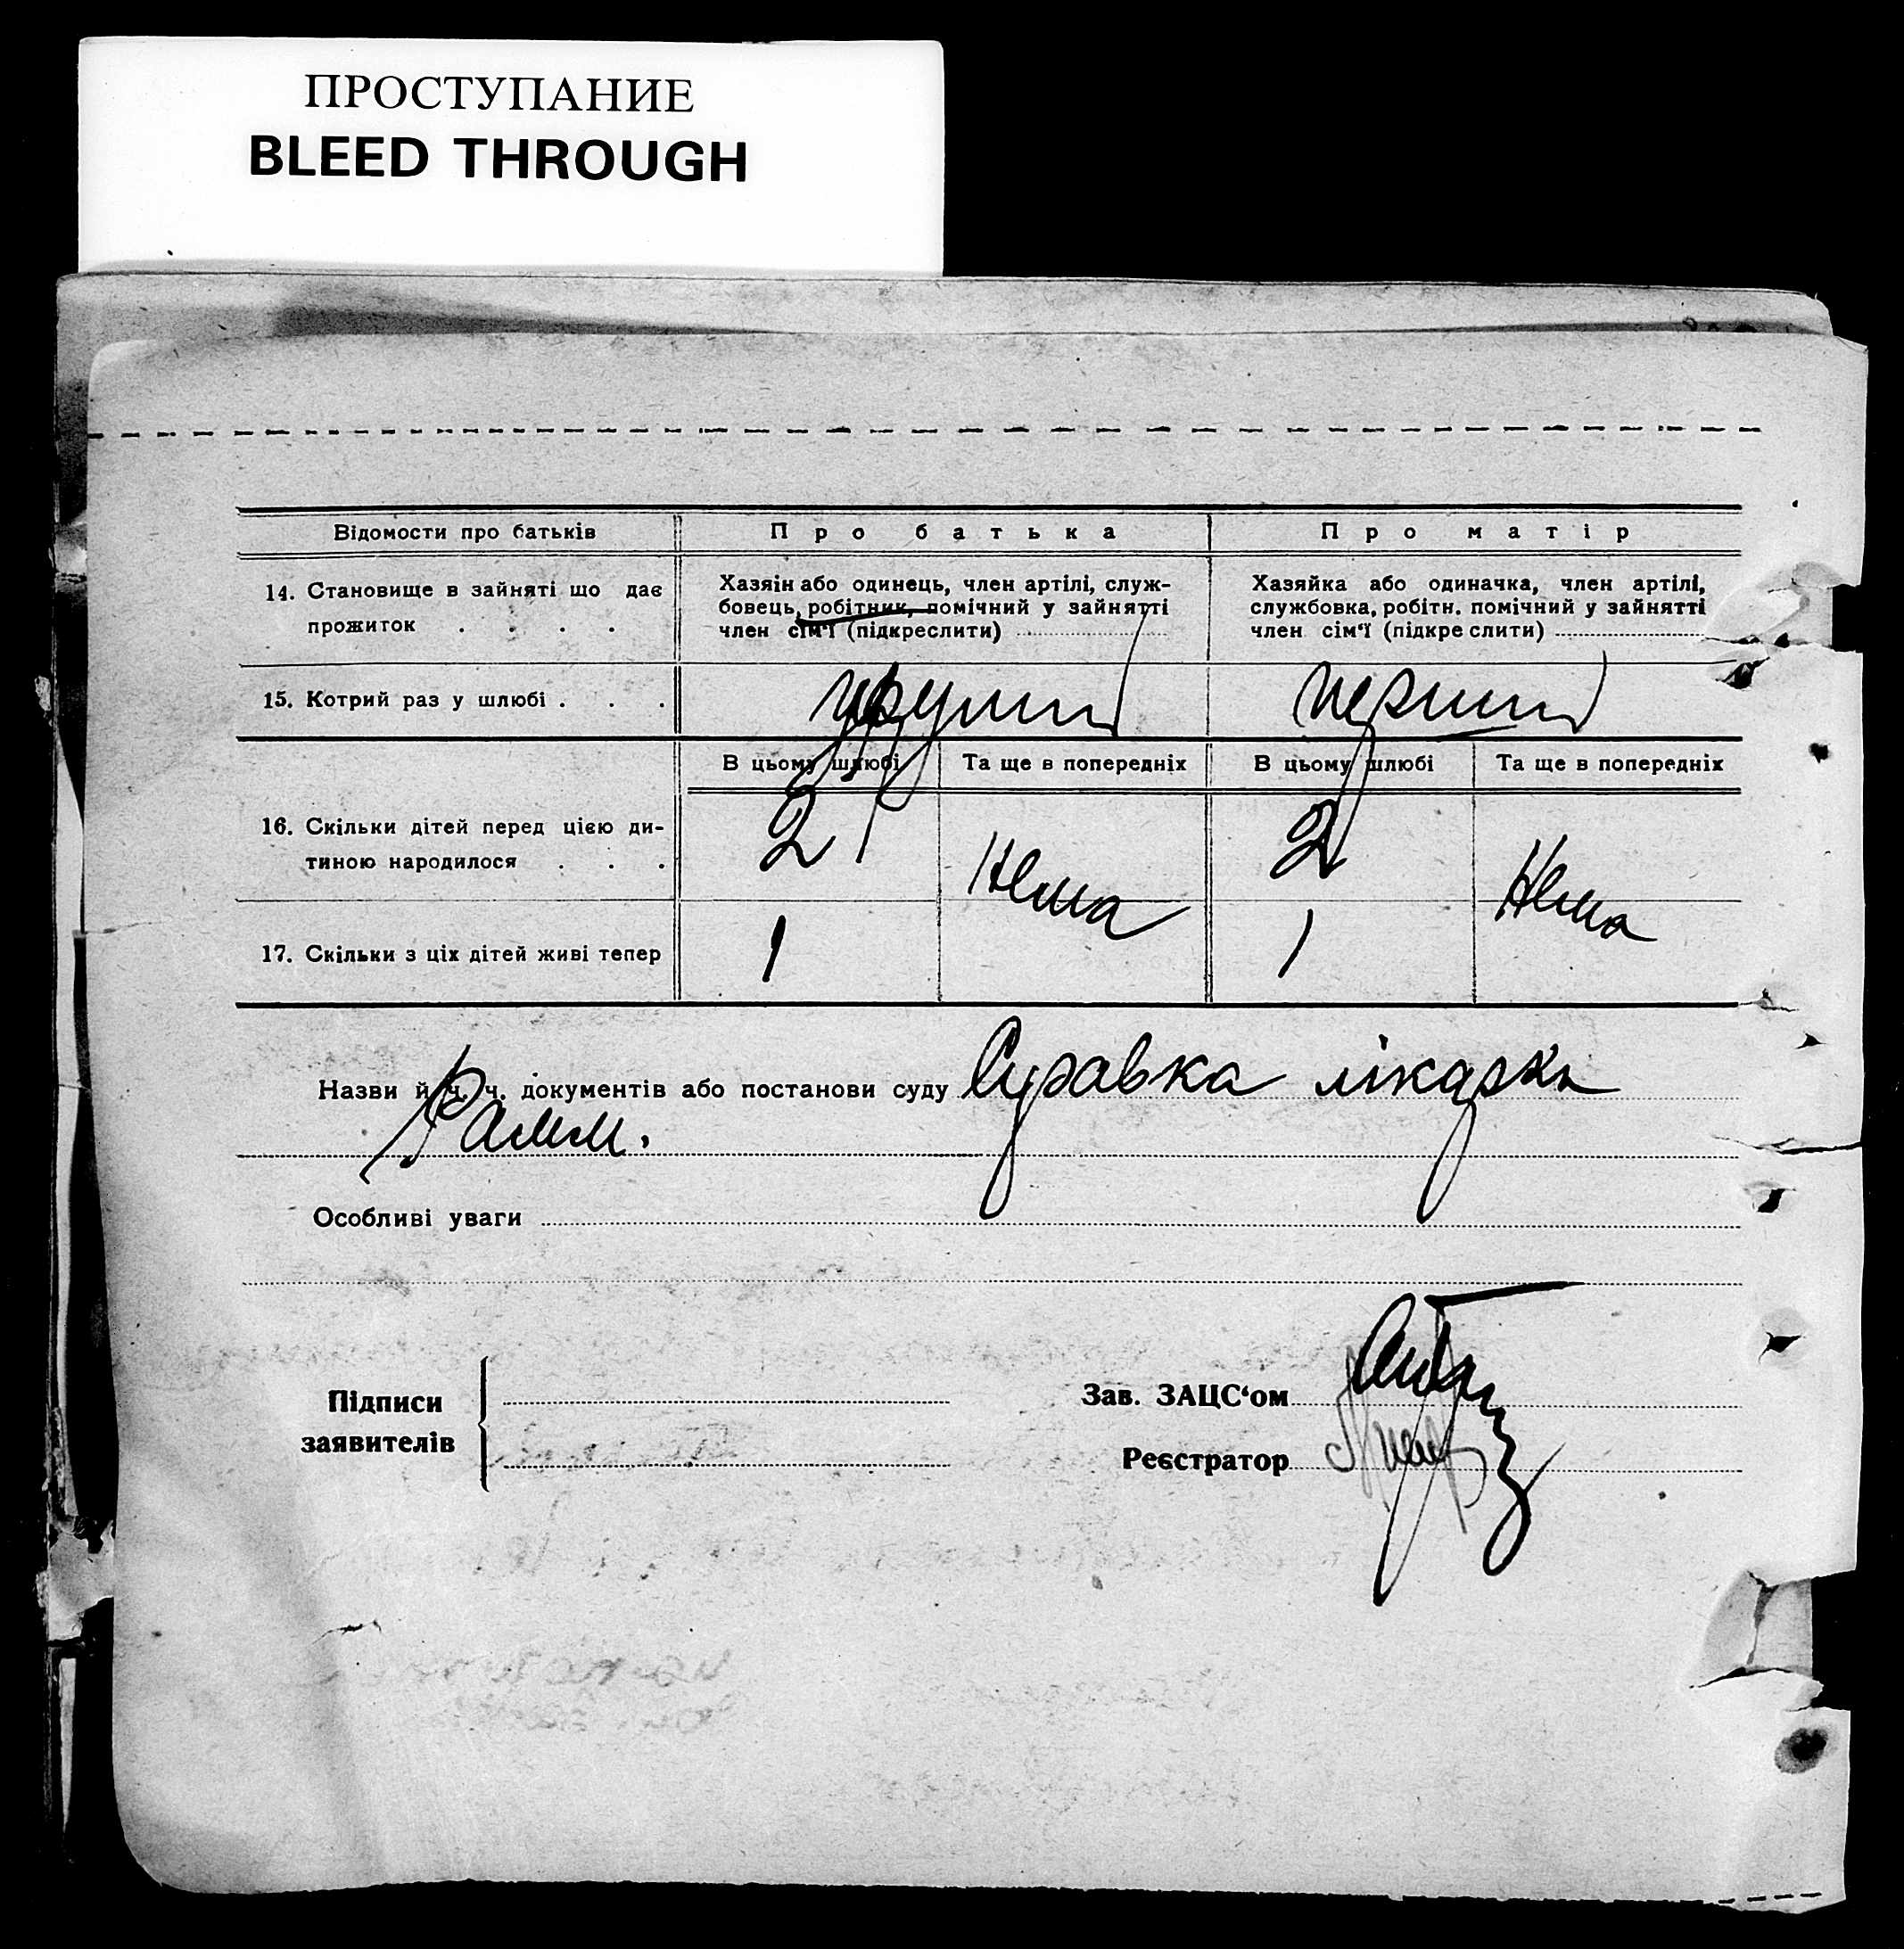 ПРОСТУПАНИЕ
BLEED THROUGH
Відомости про батьків
Про батька
Про матір
14. Становище в зайняті що дає
прожиток . . . .
Хазяін або одинець, член артілі, служ-
бовець, робітник, помічний у зайнятті
член сім‘ї (підкреслити)
Хазяйка або одиначка, член артілі,
службовка, робітн. помічний у зайнятті
член сім‘ї (підкреслити)
15. Котрий раз у шлюбі . . .
другий
перший
В цьому шлюбі
Та ще в попередніх
В цьому шлюбі
Та ще в попередніх
16. Скільки дітей перед цією ди-
тиною народилося . . .
2
Нема
2
Нема
17. Скільки з ціх дітей живі тепер
1
1
Назви й ч. ч. документів або постанови суду Справка лікарки
Рамм.
Особливі уваги
Підписи
заявителів
Зав. ЗАЦС‘ом
Реєстратор